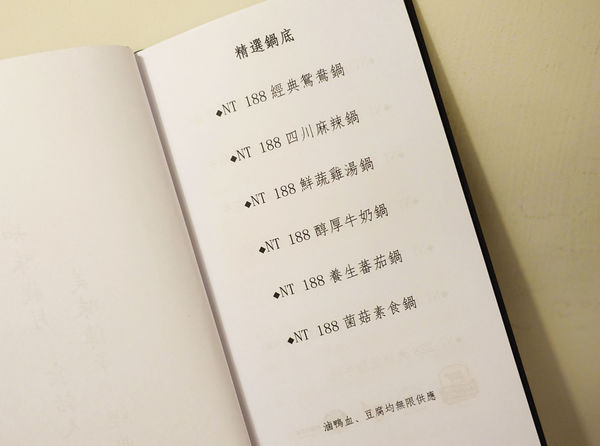 精選鍋底
◆NT 188 經典鴛鴦鍋
◆NT 188 四川麻辣鍋
◆NT 188 鮮蔬雞湯鍋
◆NT 188 醇厚牛奶鍋
◆NT 188 養生蕃茄鍋
◆NT 188 菌菇素食鍋
滷鴨血、豆腐均無限供應